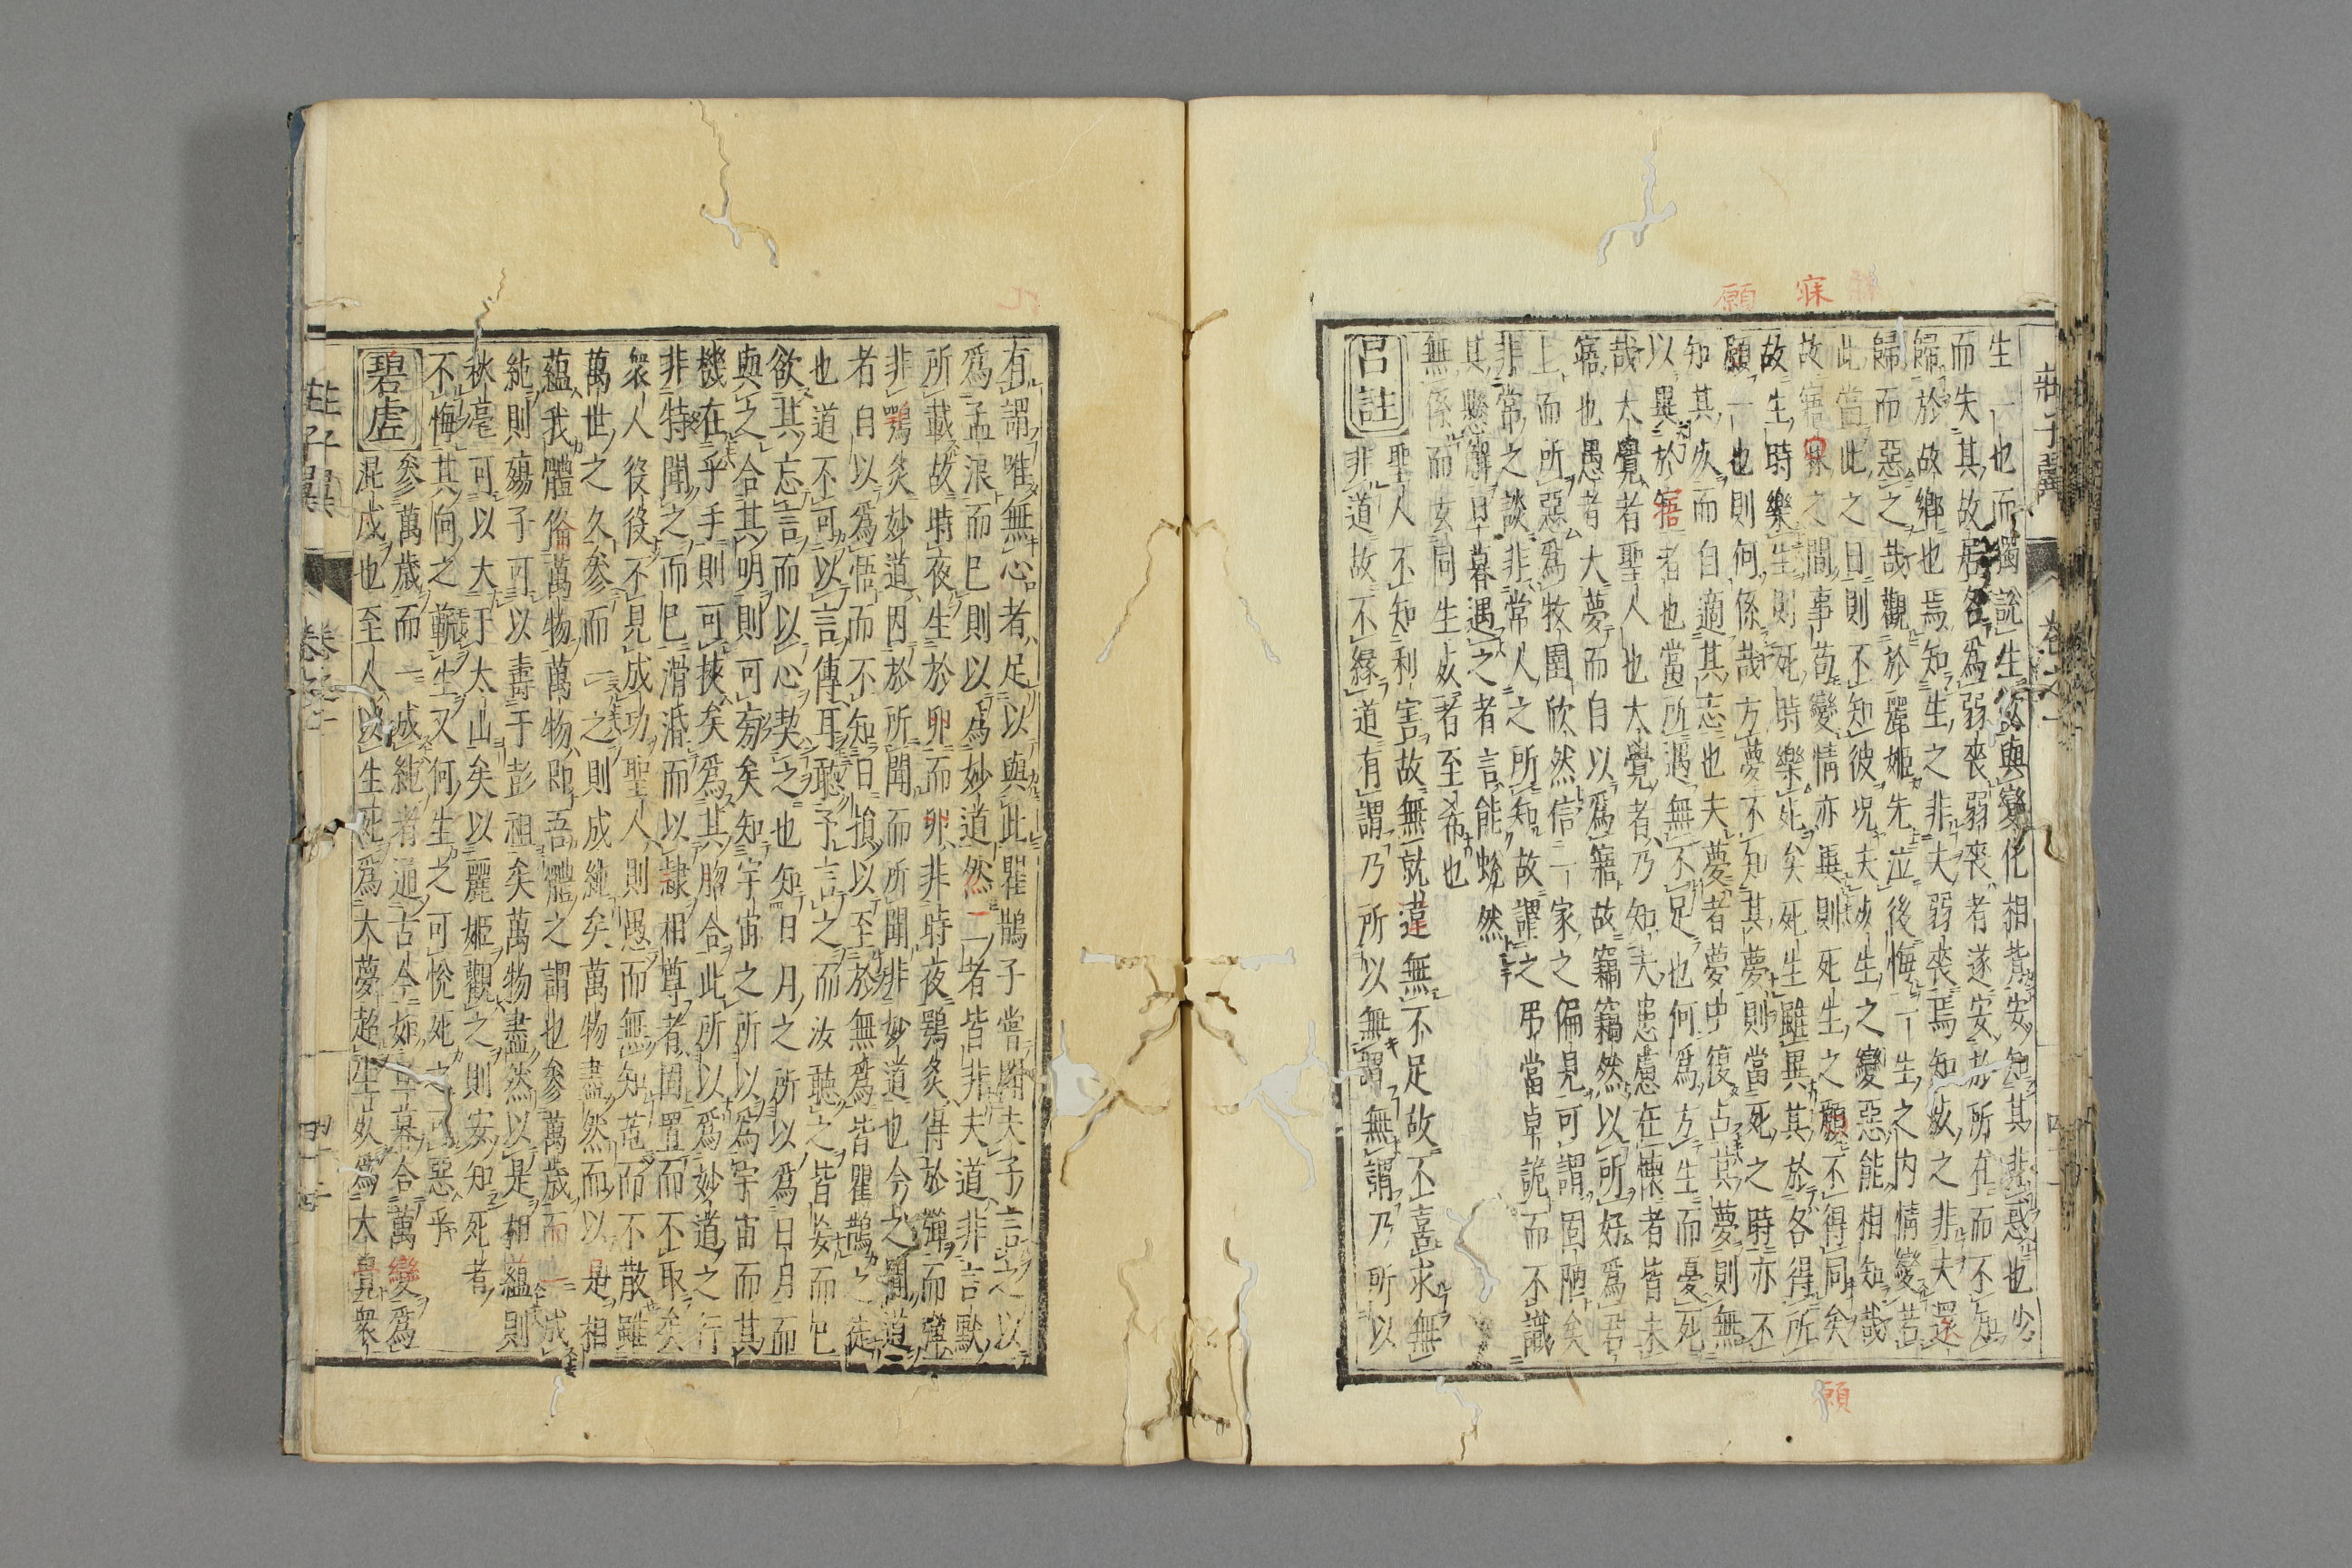 願 寐
生一也而獨說生欲與變化相背安知其非惑也少
而失其故居名爲弱喪弱喪者遂安於所在而不知
歸於故鄉也焉知生之非夫弱喪焉知死之非夫還
歸而惡之哉觀於麗姬先泣後悔一生之內情變若
此當此之日則不知彼况夫死生之變惡能相知哉
故寤寐之間事苟變情亦異則死生之願不得同矣
故生時樂生則死時樂死矣死生雖異其於各得所
願一也則何係哉方夢不知其夢則當死之時亦不
知其死而自適其志也夫夢者夢中復占其夢則無
以異於寤者也當所遇無不足也何爲方生而憂死
哉大覺者聖人也大覺者乃知夫患慮在懷者皆未
寤也愚者大夢而自以爲寤故竊竊然以所好爲君
上而所惡爲牧圉欣然信一家之偏見可謂固陋矣
非常之談非常人之所知故謂之弔當卓詭而不識
其懸解旦暮遇之者言能蛻然
無係而玄同生死者至希也
呂註
聖人不知利害故無就違無不足故不喜求無
非道故不緣道有謂乃所以無謂無謂乃所以
莊子翼 卷之一
有謂唯無心者足以與此瞿鵲子嘗聞夫子言之以
爲孟浪而已則以爲妙道然二者皆非夫道非言默
所載故時夜生於卵而卵非時夜鴞炙得於彈而彈
非鴞炙妙道因於所聞而所聞非妙道也今之聞道
者日以爲悟而不知日損以至於無爲皆瞿鵲之徒
也道不可以言傳耳聽予言之而汝聽之皆妄而已
欲其忘言而以心契之也知日月之所以爲日月而
與之合其明則可旁矣知宇宙之所以爲宇宙而其
機在乎手則可挾矣爲其脗合此所以爲妙道之行
非特聞之而已滑涽而以隸相尊者固置而不取矣
衆人役役不見成功聖人則愚而無知芚而不散雖
萬世之久參而一之則成純矣萬物盡然而以是相
蘊我體備萬物萬物卽吾體之謂也參萬歲而一成
純則殤子可以壽于彭祖矣萬物盡然以是相蘊則
秋毫可以大于太山矣以麗姬觀之則安知死者
不悔其何之蘄生又何生之可悅死之可惡乎
碧虛
參萬歲而一成純者通古今如旦暮合萬變爲
混成也至人以生死爲大夢超生死爲大覺衆
莊子翼
願